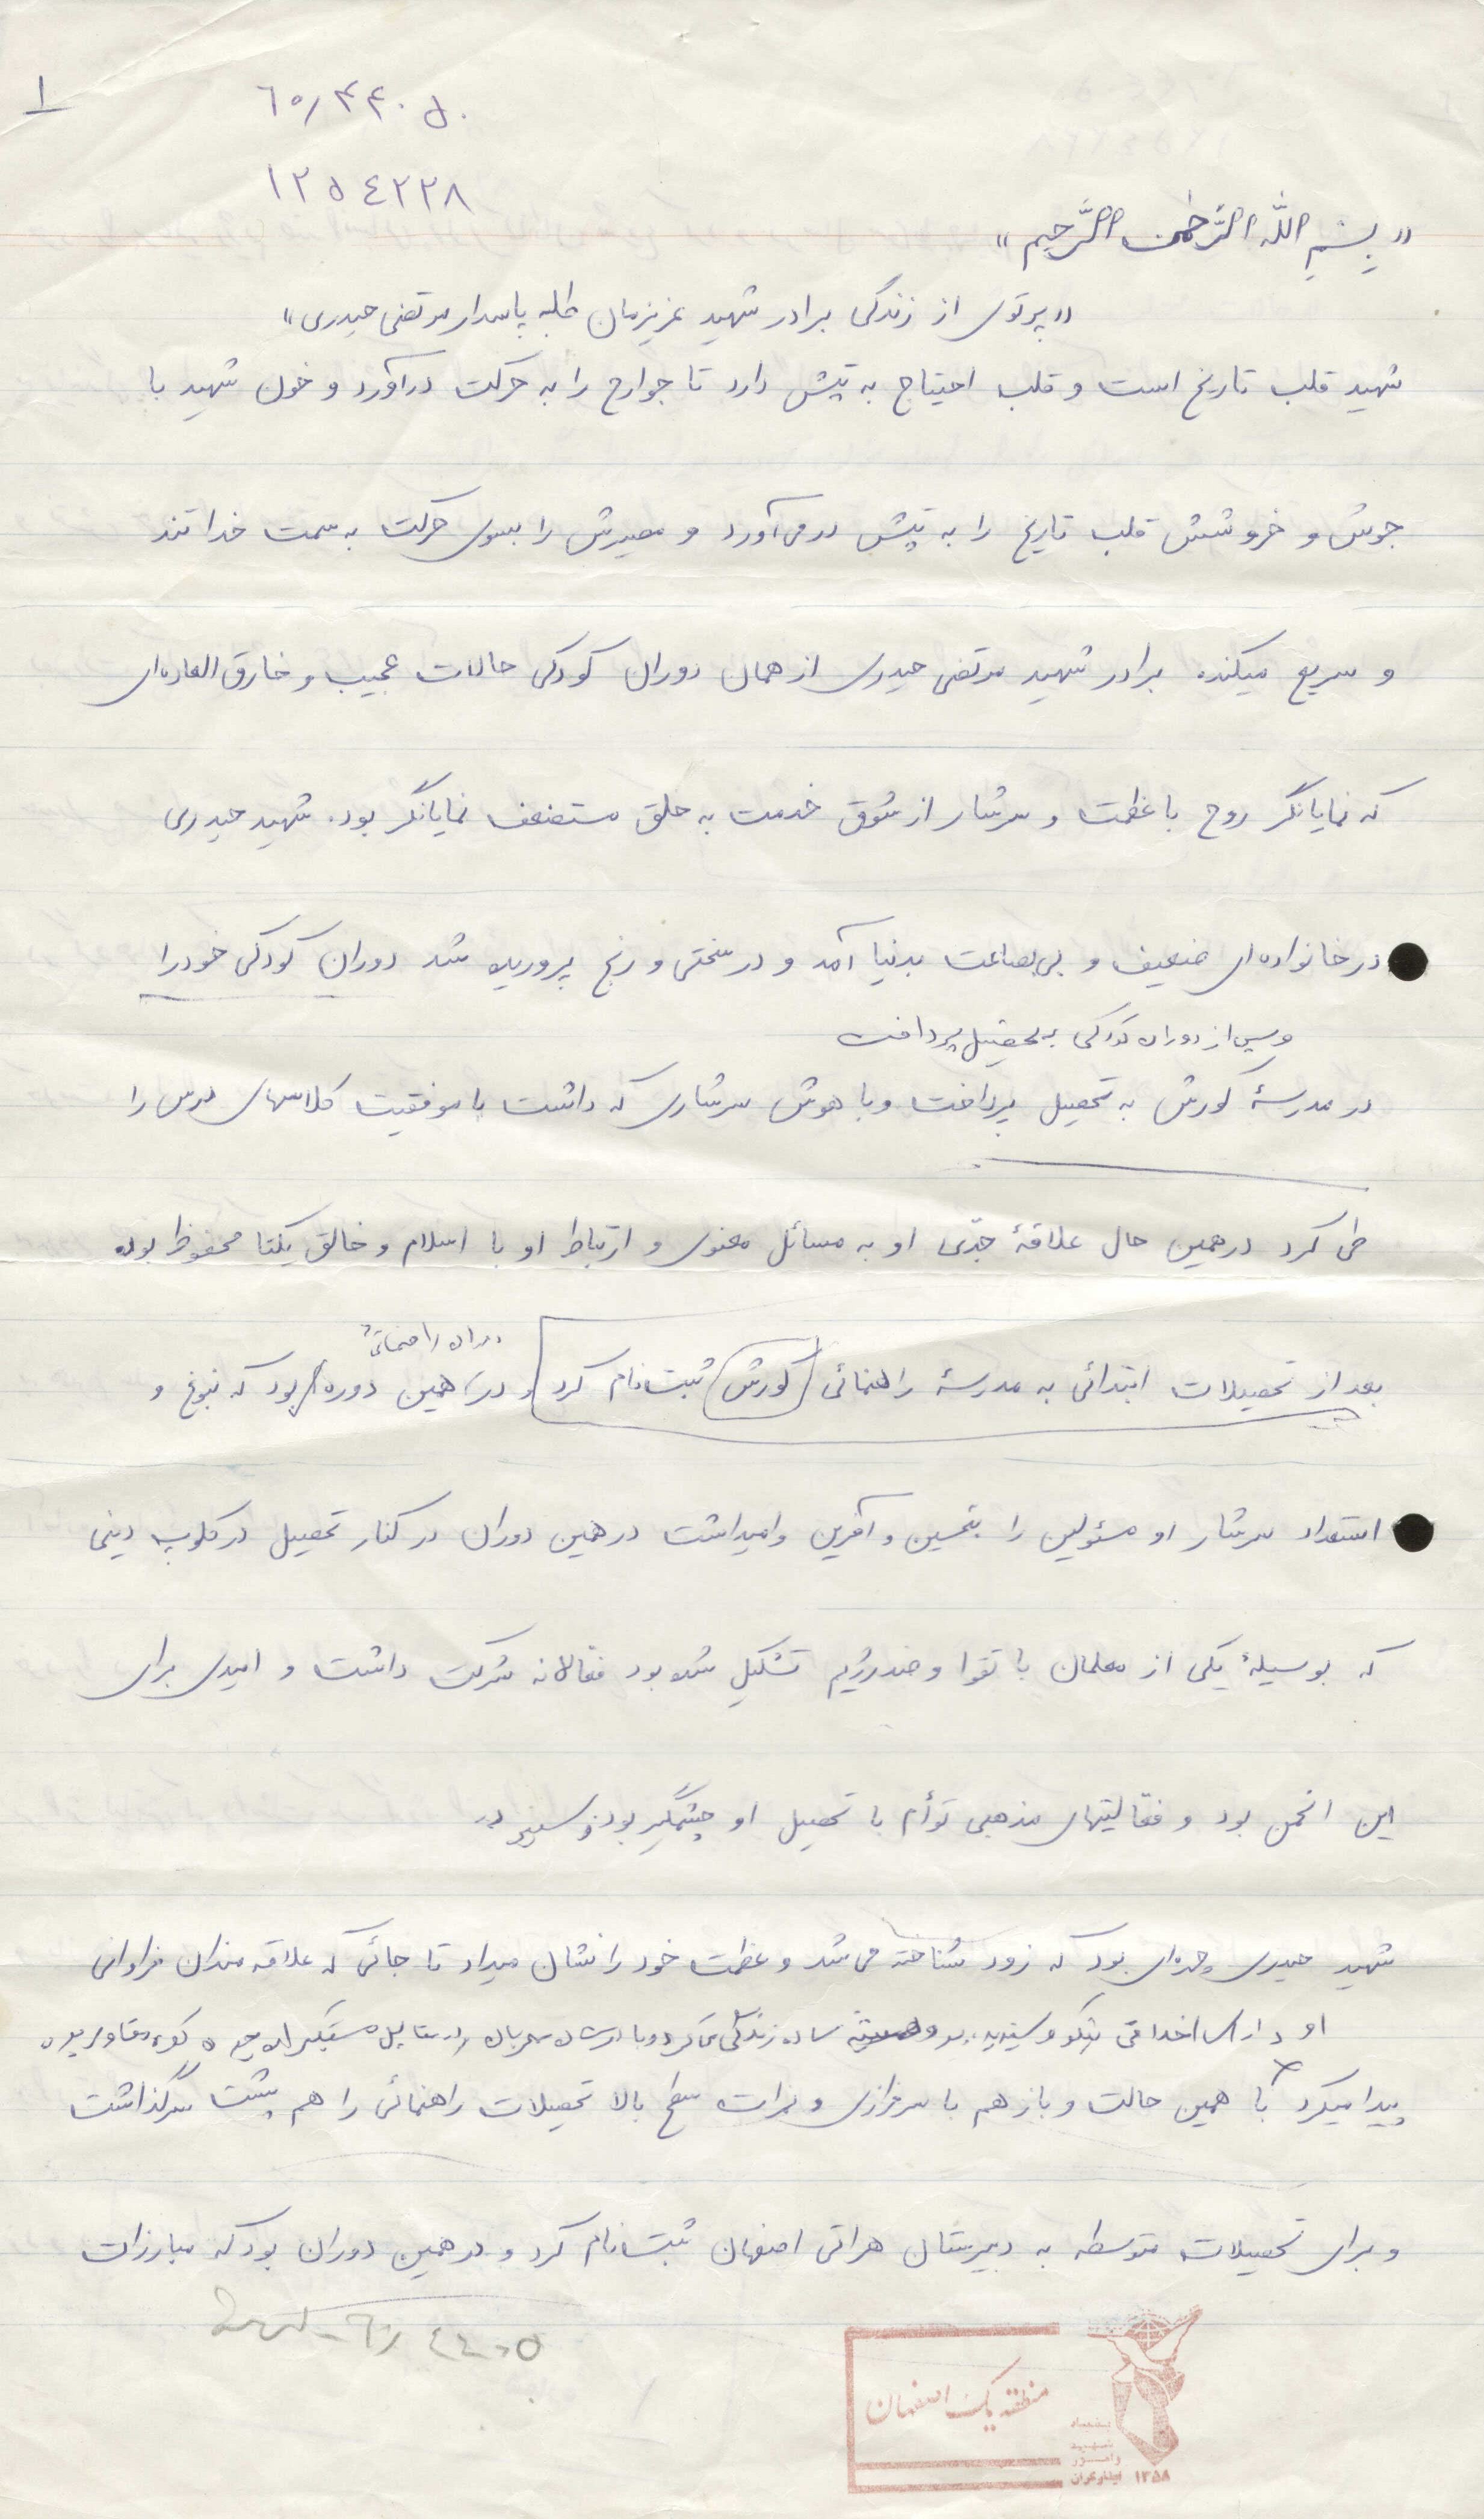 ۱
۶۵/۴۴۰۵۰
۱۲۵۴۲۲۸
«بِسْمِ اللّهِ الرَّحْمنِ الرَّحیمِ»
«پرتوی از زندگی برادر شهید عزیزمان طلبه پاسدار مرتضی حیدری»
شهید قلب تاریخ است و قلب احتیاج به تپش دارد تا جوارح را به حرکت درآورد و خون شهید با
جوش و خروشش قلب تاریخ را به تپش درمی‌آورد و مسیرش را بسوی حرکت به سمت خدا تند
و سریع میکند. برادر شهید مرتضی حیدری از همان دوران کودکی حالات عجیب و خارق‌العاده‌ای
که نمایانگر روح باعظمت و سرشار از شوق خدمت به خلق مستضعف نمایانگر بود. شهید حیدری
در خانواده‌ای ضعیف و بی‌بضاعت بدنیا آمد و در سختی و رنج پروریده شد دوران کودکی خود را
و پس از دوران کودکی به تحصیل پرداخت
در مدرسهٔ کورش به تحصیل پرداخت و با هوش سرشاری که داشت با موفقیت کلاسهای درس را
طی کرد در همین حال علاقهٔ جدّی او به مسائل معنوی و ارتباط او با اسلام و خالق یکتا محفوظ بود
دوران راهنمائی
بعد از تحصیلات ابتدائی به مدرسهٔ راهنمائی کورش ثبت‌نام کرد و در همین دوره بود که نبوغ و
استعداد سرشار او مسئولین را بتحسین و آفرین وامیداشت در همین دوران در کنار تحصیل در کلوب دینی
که بوسیلهٔ یکی از معلمان با تقوا و ضد رژیم تشکیل شده بود فعالانه شرکت داشت و امیدی برای
این انجمن بود و فعّالیتهای مذهبی توأم با تحصیل او چشمگیر بود
شهید حیدری چهره‌ای بود که زود شناخته می‌شد و عظمت خود را نشان میداد تا جائی که علاقه‌مندان فراوانی
او دارای اخلاقی نیکو و پسندیده بود و همیشه ساده زندگی می‌کرد و با دوستان مهربان و در مقابل
پیدا میکرد با همین حالت و باز هم با سرفرازی و نمرات سطح بالا تحصیلات راهنمائی را هم پشت سر گذاشت
و برای تحصیلات متوسطه به دبیرستان هراتی اصفهان ثبت‌نام کرد و در همین دوران بود که مبارزات
منطقه یک اصفهان
بنیاد
شهید
و امور
ایثارگران ۱۳۵۸